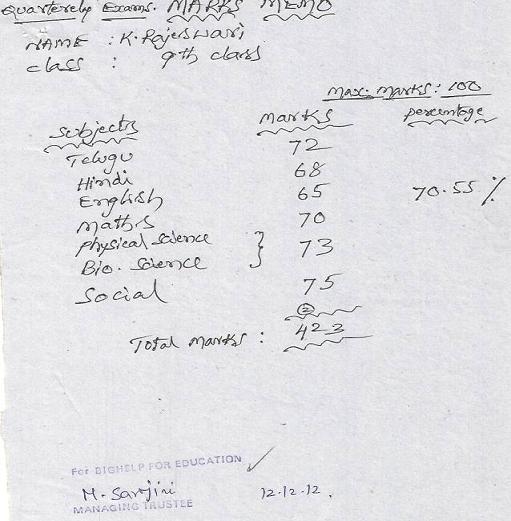 Quarterely Exams. MARKS MEMO
NAME : K. Rajeswari
class : 9th class
Max. Marks : 100
Subjects Marks percentage
Telugu 72
Hindi 68
English 65 70.55 %
Maths 70
physical science } 73
Bio. Science
Social 75
②
Total Marks : 423
For BIGHELP FOR EDUCATION
M. Sarojini 12.12.12.
MANAGING TRUSTEE